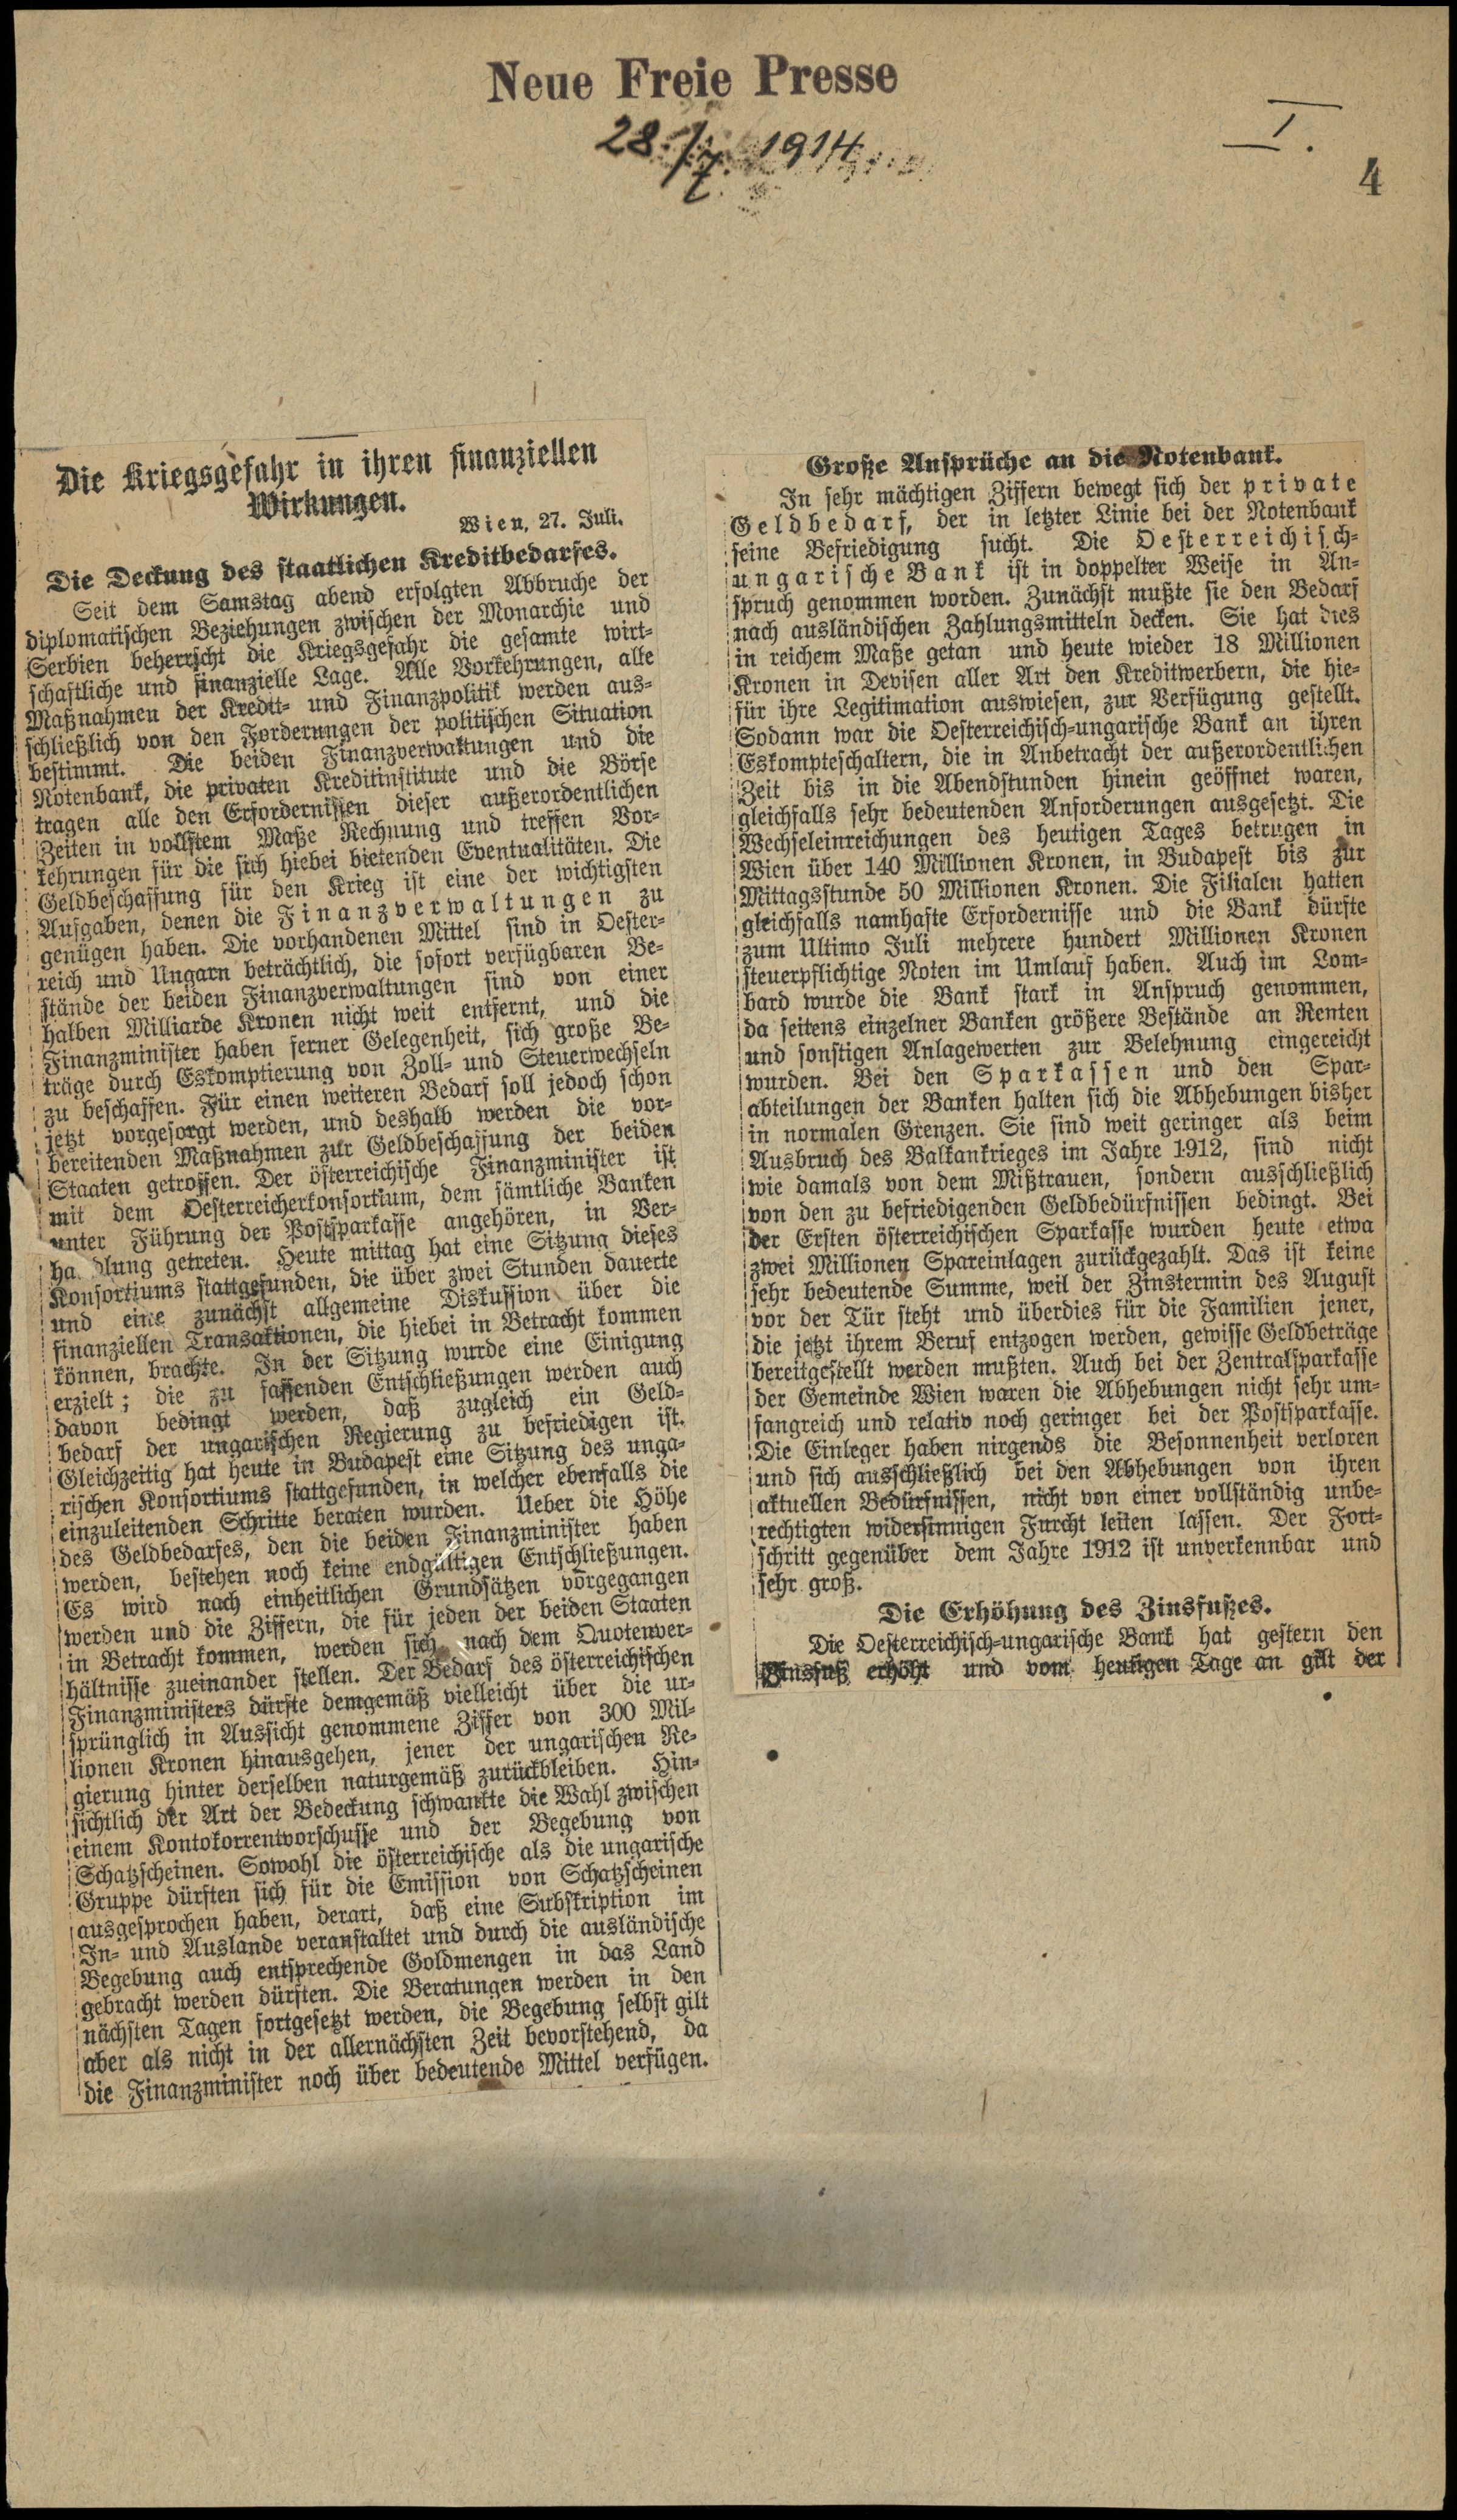 Neue Freie Presse
28./7. 1914
I.
4
Die Kriegsgefahr in ihren finanziellen
Wirkungen.
Wien, 27. Juli.
Die Deckung des staatlichen Kreditbedarfes.
Seit dem Samstag abend erfolgten Abbruche der
diplomatischen Beziehungen zwischen der Monarchie und
Serbien beherrscht die Kriegsgefahr die gesamte wirt-
schaftliche und finanzielle Lage. Alle Vorkehrungen, alle
Maßnahmen der Kredit- und Finanzpolitik werden aus-
schließlich von den Forderungen der politischen Situation
bestimmt. Die beiden Finanzverwaltungen und die
Notenbank, die privaten Kreditinstitute und die Börse
tragen alle den Erfordernissen dieser außerordentlichen
Zeiten in vollstem Maße Rechnung und treffen Vor-
kehrungen für die sich hiebei bietenden Eventualitäten. Die
Geldbeschaffung für den Krieg ist eine der wichtigsten
Aufgaben, denen die Finanzverwaltungen zu
genügen haben. Die vorhandenen Mittel sind in Oester-
reich und Ungarn beträchtlich, die sofort verfügbaren Be-
stände der beiden Finanzverwaltungen sind von einer
halben Milliarde Kronen nicht weit entfernt, und die
Finanzminister haben ferner Gelegenheit, sich große Be-
träge durch Eskomptierung von Zoll- und Steuerwechseln
zu beschaffen. Für einen weiteren Bedarf soll jedoch schon
jetzt vorgesorgt werden, und deshalb werden die vor-
bereitenden Maßnahmen zur Geldbeschaffung der beiden
Staaten getroffen. Der österreichische Finanzminister ist
mit dem Oesterreicherkonsortium, dem sämtliche Banken
unter Führung der Postsparkasse angehören, in Ver-
ha dlung getreten. Heute mittag hat eine Sitzung dieses
Konsortiums stattgefunden, die über zwei Stunden dauerte
und eine zunächst allgemeine Diskussion über die
finanziellen Transaktionen, die hiebei in Betracht kommen
können, brachte. In der Sitzung wurde eine Einigung
erzielt; die zu fassenden Entschließungen werden auch
davon bedingt werden, daß zugleich ein Geld-
bedarf der ungarischen Regierung zu befriedigen ist.
Gleichzeitig hat heute in Budapest eine Sitzung des unga-
rischen Konsortiums stattgefunden, in welcher ebenfalls die
einzuleitenden Schritte beraten wurden. Ueber die Höhe
des Geldbedarfes, den die beiden Finanzminister haben
werden, bestehen noch keine endgültigen Entschließungen.
Es wird nach einheitlichen Grundsätzen vorgegangen
werden und die Ziffern, die für jeden der beiden Staaten
in Betracht kommen, werden sich nach dem Quotenver-
hältnisse zueinander stellen. Der Bedarf des österreichischen
Finanzministers dürfte demgemäß vielleicht über die ur-
sprünglich in Aussicht genommene Ziffer von 300 Mil-
lionen Kronen hinausgehen, jener der ungarischen Re-
gierung hinter derselben naturgemäß zurückbleiben. Hin-
sichtlich der Art der Bedeckung schwankte die Wahl zwischen
einem Kontokorrentvorschusse und der Begebung von
Schatzscheinen. Sowohl die österreichische als die ungarische
Gruppe dürften sich für die Emission von Schatzscheinen
ausgesprochen haben, derart, daß eine Subskription im
In- und Auslande veranstaltet und durch die ausländische
Begebung auch entsprechende Goldmengen in das Land
gebracht werden dürften. Die Beratungen werden in den
nächsten Tagen fortgesetzt werden, die Begebung selbst gilt
aber als nicht in der allernächsten Zeit bevorstehend, da
die Finanzminister noch über bedeutende Mittel verfügen.
Große Ansprüche an die Notenbank.
In sehr mächtigen Ziffern bewegt sich der private
Geldbedarf, der in letzter Linie bei der Notenbank
seine Befriedigung sucht. Die Oesterreichisch-
ungarische Bank ist in doppelter Weise in An-
spruch genommen worden. Zunächst mußte sie den Bedarf
nach ausländischen Zahlungsmitteln decken. Sie hat dies
in reichem Maße getan und heute wieder 18 Millionen
Kronen in Devisen aller Art den Kreditwerbern, die hie-
für ihre Legitimation auswiesen, zur Verfügung gestellt.
Sodann war die Oesterreichisch-ungarische Bank an ihren
Eskompteschaltern, die in Anbetracht der außerordentlichen
Zeit bis in die Abendstunden hinein geöffnet waren,
gleichfalls sehr bedeutenden Anforderungen ausgesetzt. Die
Wechseleinreichungen des heutigen Tages betrugen in
Wien über 140 Millionen Kronen, in Budapest bis zur
Mittagsstunde 50 Millionen Kronen. Die Filialen hatten
gleichfalls namhafte Erfordernisse und die Bank dürfte
zum Ultimo Juli mehrere hundert Millionen Kronen
steuerpflichtige Noten im Umlauf haben. Auch im Lom-
bard wurde die Bank stark in Anspruch genommen,
da seitens einzelner Banken größere Bestände an Renten
und sonstigen Anlagewerten zur Belehnung eingereicht
wurden. Bei den Sparkassen und den Spar-
abteilungen der Banken halten sich die Abhebungen bisher
in normalen Grenzen. Sie sind weit geringer als beim
Ausbruch des Balkankrieges im Jahre 1912, sind nicht
wie damals von dem Mißtrauen, sondern ausschließlich
von den zu befriedigenden Geldbedürfnissen bedingt. Bei
der Ersten österreichischen Sparkasse wurden heute etwa
zwei Millionen Spareinlagen zurückgezahlt. Das ist keine
sehr bedeutende Summe, weil der Zinstermin des August
vor der Tür steht und überdies für die Familien jener,
die jetzt ihrem Beruf entzogen werden, gewisse Geldbeträge
bereitgestellt werden mußten. Auch bei der Zentralsparkasse
der Gemeinde Wien waren die Abhebungen nicht sehr um-
fangreich und relativ noch geringer bei der Postsparkasse.
Die Einleger haben nirgends die Besonnenheit verloren
und sich ausschließlich bei den Abhebungen von ihren
aktuellen Bedürfnissen, nicht von einer vollständig unbe-
rechtigten widersinnigen Furcht leiten lassen. Der Fort-
schritt gegenüber dem Jahre 1912 ist unverkennbar und
sehr groß.
Die Erhöhung des Zinsfußes.
Die Oesterreichisch-ungarische Bank hat gestern den
Zinsfuß erhöht und vom heutigen Tage an gilt der